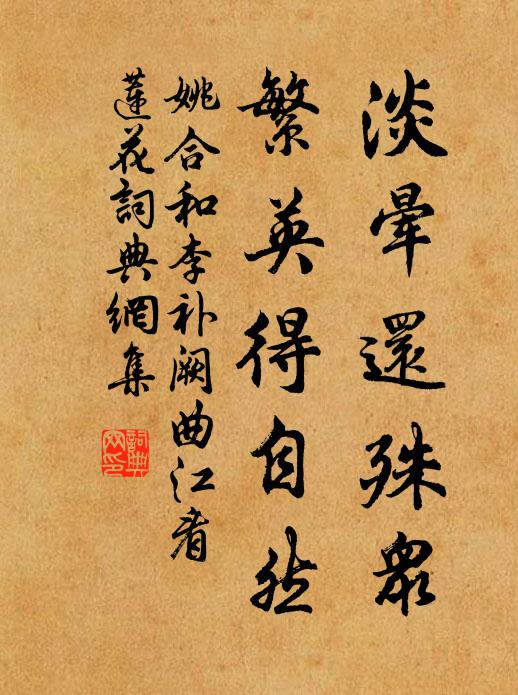 淡暈還殊眾
繁英得自然
姚合和李补阙曲江看
蓮花詞典網集
詞典
网印